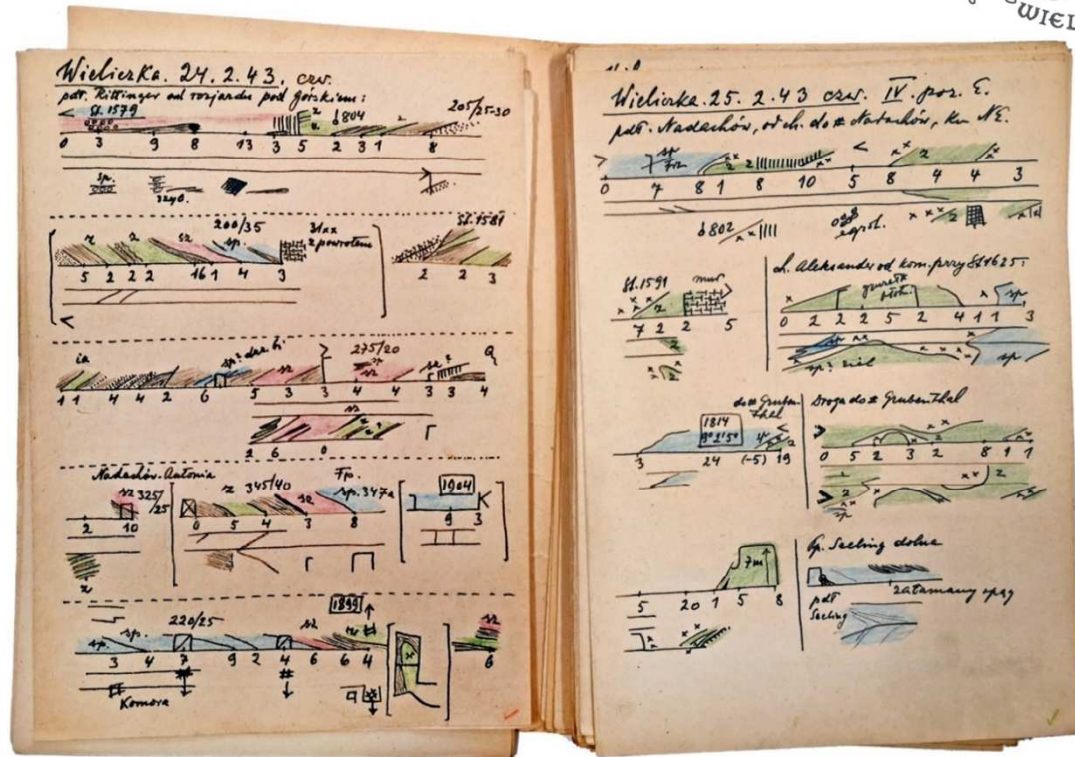 WIEL
Wieliczka. 24. 2. 43. czw.
pdł. Rittinger od rozjazdu pod górskiem:
St. 1579
804
205/25-30
0 3 9 8 13 3 5 2 3 1 8
sp.
zgr.
200/35
St. 1581
z sz sp.
z powrotem
5 2 2 2 16 1 4 3
2 2 3
ia sp?
275/20
sz
1 1 4 4 2 6 5 3 3 4 4 3 3 4
sz
2 6 0
Nadachów-Antonia
sz 325/25
z 345/40
Fp.
sz sp. 347a
1904
K
2 10
0 5 4 3 8
9 3
z
1899
220/25
sp. sp. sz
3 4 7 9 2 4 6 6 4
6
Komora
Wieliczka. 25. 2. 43 czw. IV. poz. E.
pdł. Nadachów, od ch. do # Nadachów, ku NE.
sp
0 7 8 1 8 10 5 8 4 4 3
802
zgrob.
St. 1591
mur
7 2 2 5
ch. Aleksander od kom. przy St 1625:
0 2 2 2 5 2 4 1 1 3
sp? ziel
sp
do # Gruben-
thal
1814
3 24 (-5) 19
Droga do # Grubenthal
0 5 2 3 2 8 1 1
7m
5 20 1 5 8
Gp. Seeling dolna
pdł
Seeling
załamany spąg